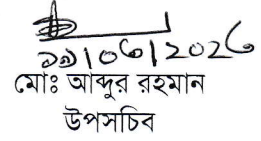 ১১/০৬/২০২৬
মোঃ আব্দুর রহমান
উপসচিব